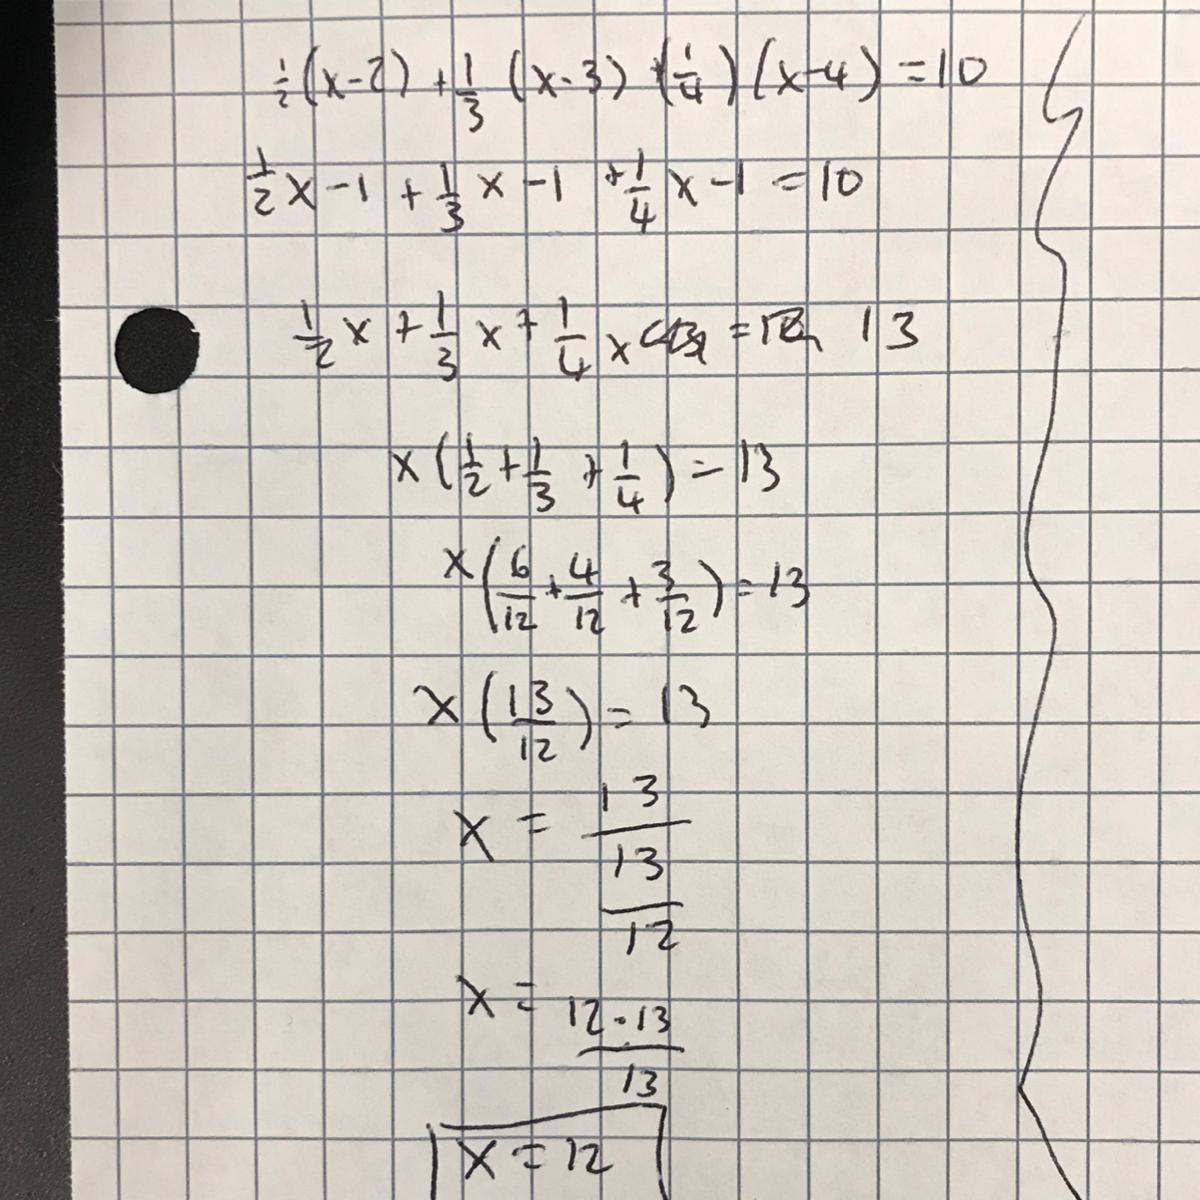 ½(x-2) + 1/3 (x-3) + (1/4)(x-4) = 10
1/2 x - 1 + 1/3 x - 1 + 1/4 x - 1 = 10
1/2 x + 1/3 x + 1/4 x = 13
x (1/2 + 1/3 + 1/4) = 13
x (6/12 + 4/12 + 3/12) = 13
x (13/12) = 13
x = 13/(13/12)
x = 12·13/13
x = 12